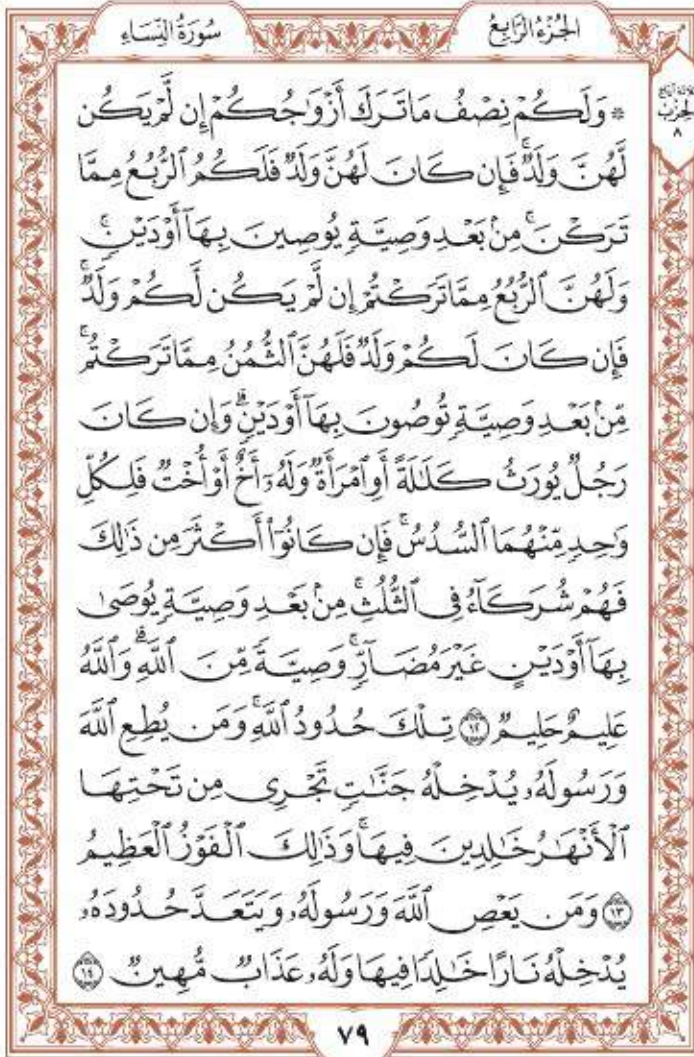 الجُزْءُ الرَّابِعُ
سُورَةُ النِّسَاءِ
ثلاثة أرباع
الحزب
٨
۞ وَلَكُمْ نِصْفُ مَا تَرَكَ أَزْوَٰجُكُمْ إِن لَّمْ يَكُن
لَّهُنَّ وَلَدٌ ۚ فَإِن كَانَ لَهُنَّ وَلَدٌ فَلَكُمُ ٱلرُّبُعُ مِمَّا
تَرَكْنَ ۚ مِنۢ بَعْدِ وَصِيَّةٍ يُوصِينَ بِهَآ أَوْ دَيْنٍ ۚ
وَلَهُنَّ ٱلرُّبُعُ مِمَّا تَرَكْتُمْ إِن لَّمْ يَكُن لَّكُمْ وَلَدٌ ۚ
فَإِن كَانَ لَكُمْ وَلَدٌ فَلَهُنَّ ٱلثُّمُنُ مِمَّا تَرَكْتُم ۚ
مِّنۢ بَعْدِ وَصِيَّةٍ تُوصُونَ بِهَآ أَوْ دَيْنٍ ۗ وَإِن كَانَ
رَجُلٌ يُورَثُ كَلَٰلَةً أَوِ ٱمْرَأَةٌ وَلَهُۥٓ أَخٌ أَوْ أُخْتٌ فَلِكُلِّ
وَٰحِدٍ مِّنْهُمَا ٱلسُّدُسُ ۚ فَإِن كَانُوٓا۟ أَكْثَرَ مِن ذَٰلِكَ
فَهُمْ شُرَكَآءُ فِى ٱلثُّلُثِ ۚ مِنۢ بَعْدِ وَصِيَّةٍ يُوصَىٰ
بِهَآ أَوْ دَيْنٍ غَيْرَ مُضَآرٍّ ۚ وَصِيَّةً مِّنَ ٱللَّهِ ۗ وَٱللَّهُ
عَلِيمٌ حَلِيمٌ ١٢ تِلْكَ حُدُودُ ٱللَّهِ ۚ وَمَن يُطِعِ ٱللَّهَ
وَرَسُولَهُۥ يُدْخِلْهُ جَنَّٰتٍ تَجْرِى مِن تَحْتِهَا
ٱلْأَنْهَٰرُ خَٰلِدِينَ فِيهَا ۚ وَذَٰلِكَ ٱلْفَوْزُ ٱلْعَظِيمُ
١٣ وَمَن يَعْصِ ٱللَّهَ وَرَسُولَهُۥ وَيَتَعَدَّ حُدُودَهُۥ
يُدْخِلْهُ نَارًا خَٰلِدًا فِيهَا وَلَهُۥ عَذَابٌ مُّهِينٌ ١٤
٧٩